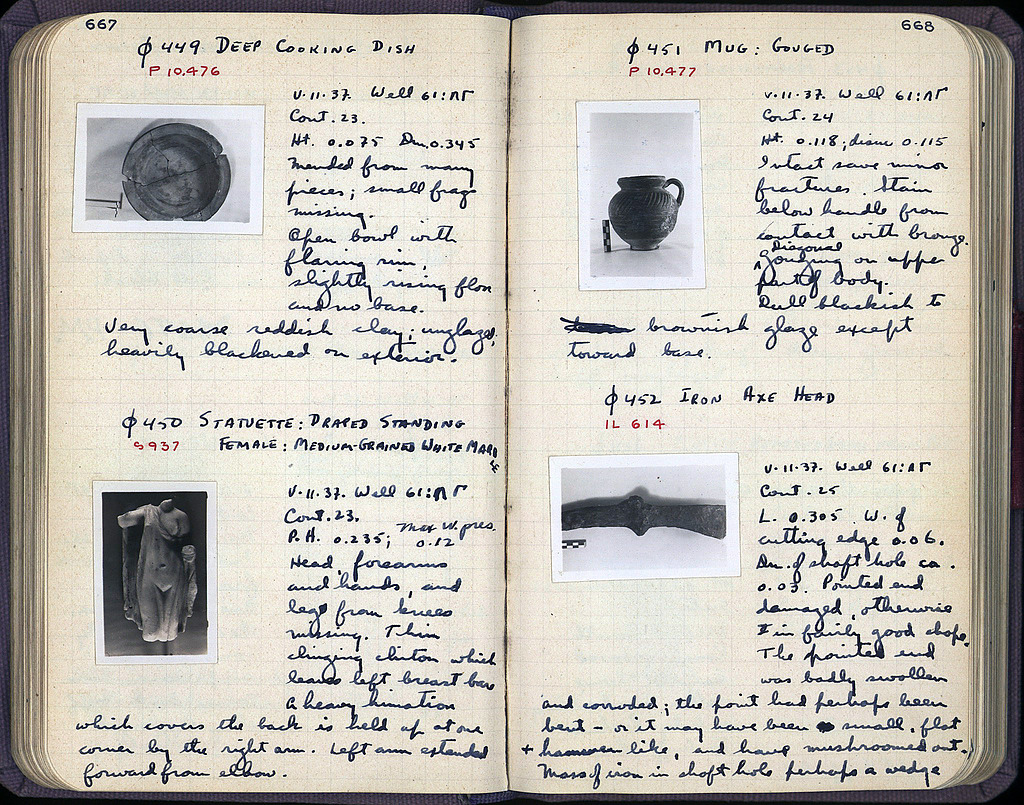 667
φ449 DEEP COOKING DISH
P 10.476
V.11.37. Well 61:ΛΓ
Cont. 23.
Ht. 0.075 Dm. 0.345
Mended from many
pieces; small frags
missing.
Open bowl with
flaring rim,
slightly rising floor
and no base.
Very coarse reddish clay; unglazed,
heavily blackened on exterior.
φ450 STATUETTE: DRAPED STANDING
S 937 FEMALE: MEDIUM-GRAINED WHITE MARBLE
V.11.37. Well 61:ΛΓ
Cont. 23.
P.H. 0.235; Max W. pres. 0.12
Head, forearms
and hands, and
legs from knees
missing. Thin
clinging chiton which
leaves left breast bare
A heavy himation
which covers the back is held up at one
corner by the right arm. Left arm extended
forward from elbow.
668
φ451 MUG: GOUGED
P 10.477
V.11.37. Well 61:ΛΓ
Cont. 24
Ht. 0.118; diam 0.115
Intact save minor
fractures. Stain
below handle from
contact with bronze.
Diagonal
gouging on upper
part of body.
Dull blackish to
brownish glaze except
toward base.
φ452 IRON AXE HEAD
IL 614
V.11.37. Well 61:ΛΓ
Cont. 25
L. 0.305 W. of
cutting edge 0.06.
Dm. of shaft hole ca.
0.03. Pointed end
damaged, otherwise
in fairly good shape.
The pointed end
was badly swollen
and corroded; the point had perhaps been
bent - or it may have been small, flat
+ hammer like, and have mushroomed out.
Mass of iron in shaft hole perhaps a wedge